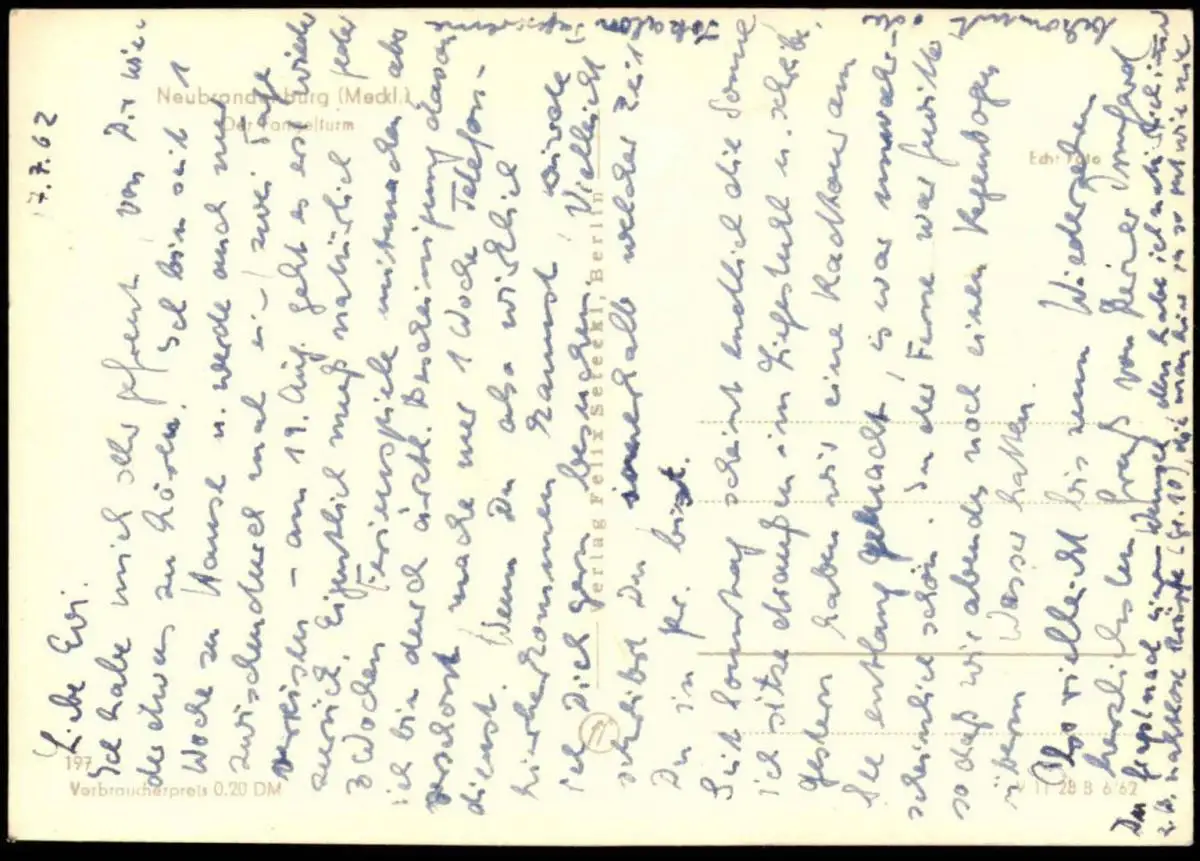 17.7.62
Liebe Evi.
Ich habe mich sehr gefreut, von Dir wie-
der etwas zu hören. Ich bin seit 1
Woche zu Hause u. werde auch nur
zwischendurch mal ein-/zwei Tage
verreisen – am 19. Aug. geht es erst wieder
zurück. Eigentlich muß natürlich jeder
3 Wochen Ferienspiele mitmachen, aber
ich bin durch ärztl. Bescheinigung davon
verschont, mache nur 1 Woche Telefon-
dienst. Wenn Du also wirklich
hierherkommen kannst, würde
ich Dich gern besuchen. Vielleicht
schreibst Du innerhalb welcher Zeit
Du in Pr. bist.
Seit Sonntag scheint endlich die Sonne
ich sitze draußen im Liegestuhl u. schreibe.
Gestern haben wir eine Radtour am
See entlang gemacht, es war unwahr-
scheinlich schön. In der Ferne war Gewitter,
so daß wir abends noch einen Regenbogen
überm Wasser hatten.
Also vielleicht bis zum Wiedersehen
herzlichsten Gruß von Deiner Irmgard
z.B. nahtlose Strümpfe (Gr. 10), die man hier so gut wie nie
bekommt oder
Neubrandenburg (Meckl.)
Der Fangelturm
Echt Foto
Verlag Felix Setecki, Berlin
197
Verbraucherpreis 0.20 DM
V 11 28 B 6/62